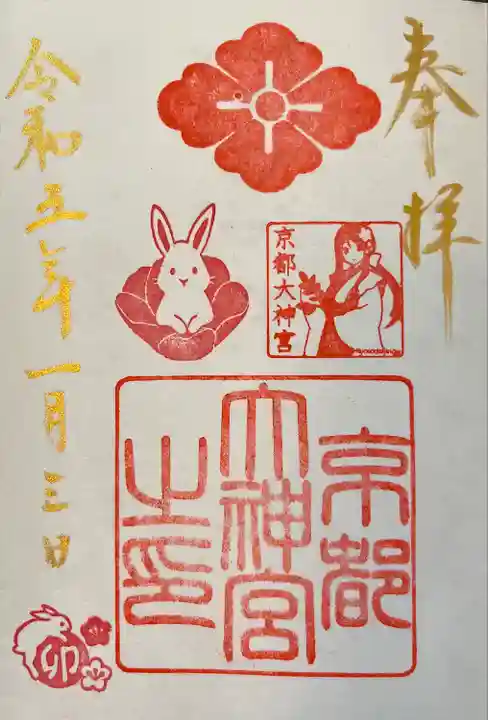 奉拝
京都大神宮
京都
大神宮
之印
令和五年一月三日
卯